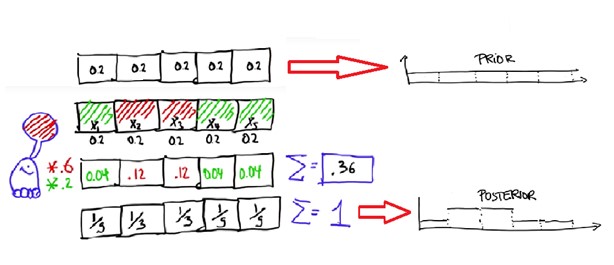 0.2 0.2 0.2 0.2 0.2
PRIOR
X1 X2 X3 X4 X5
0.2 0.2 0.2 0.2 0.2
*.6
*.2
0.04 .12 .12 0.04 0.04 Σ= .36
1/9 1/3 1/3 1/9 1/9 Σ= 1
POSTERIOR